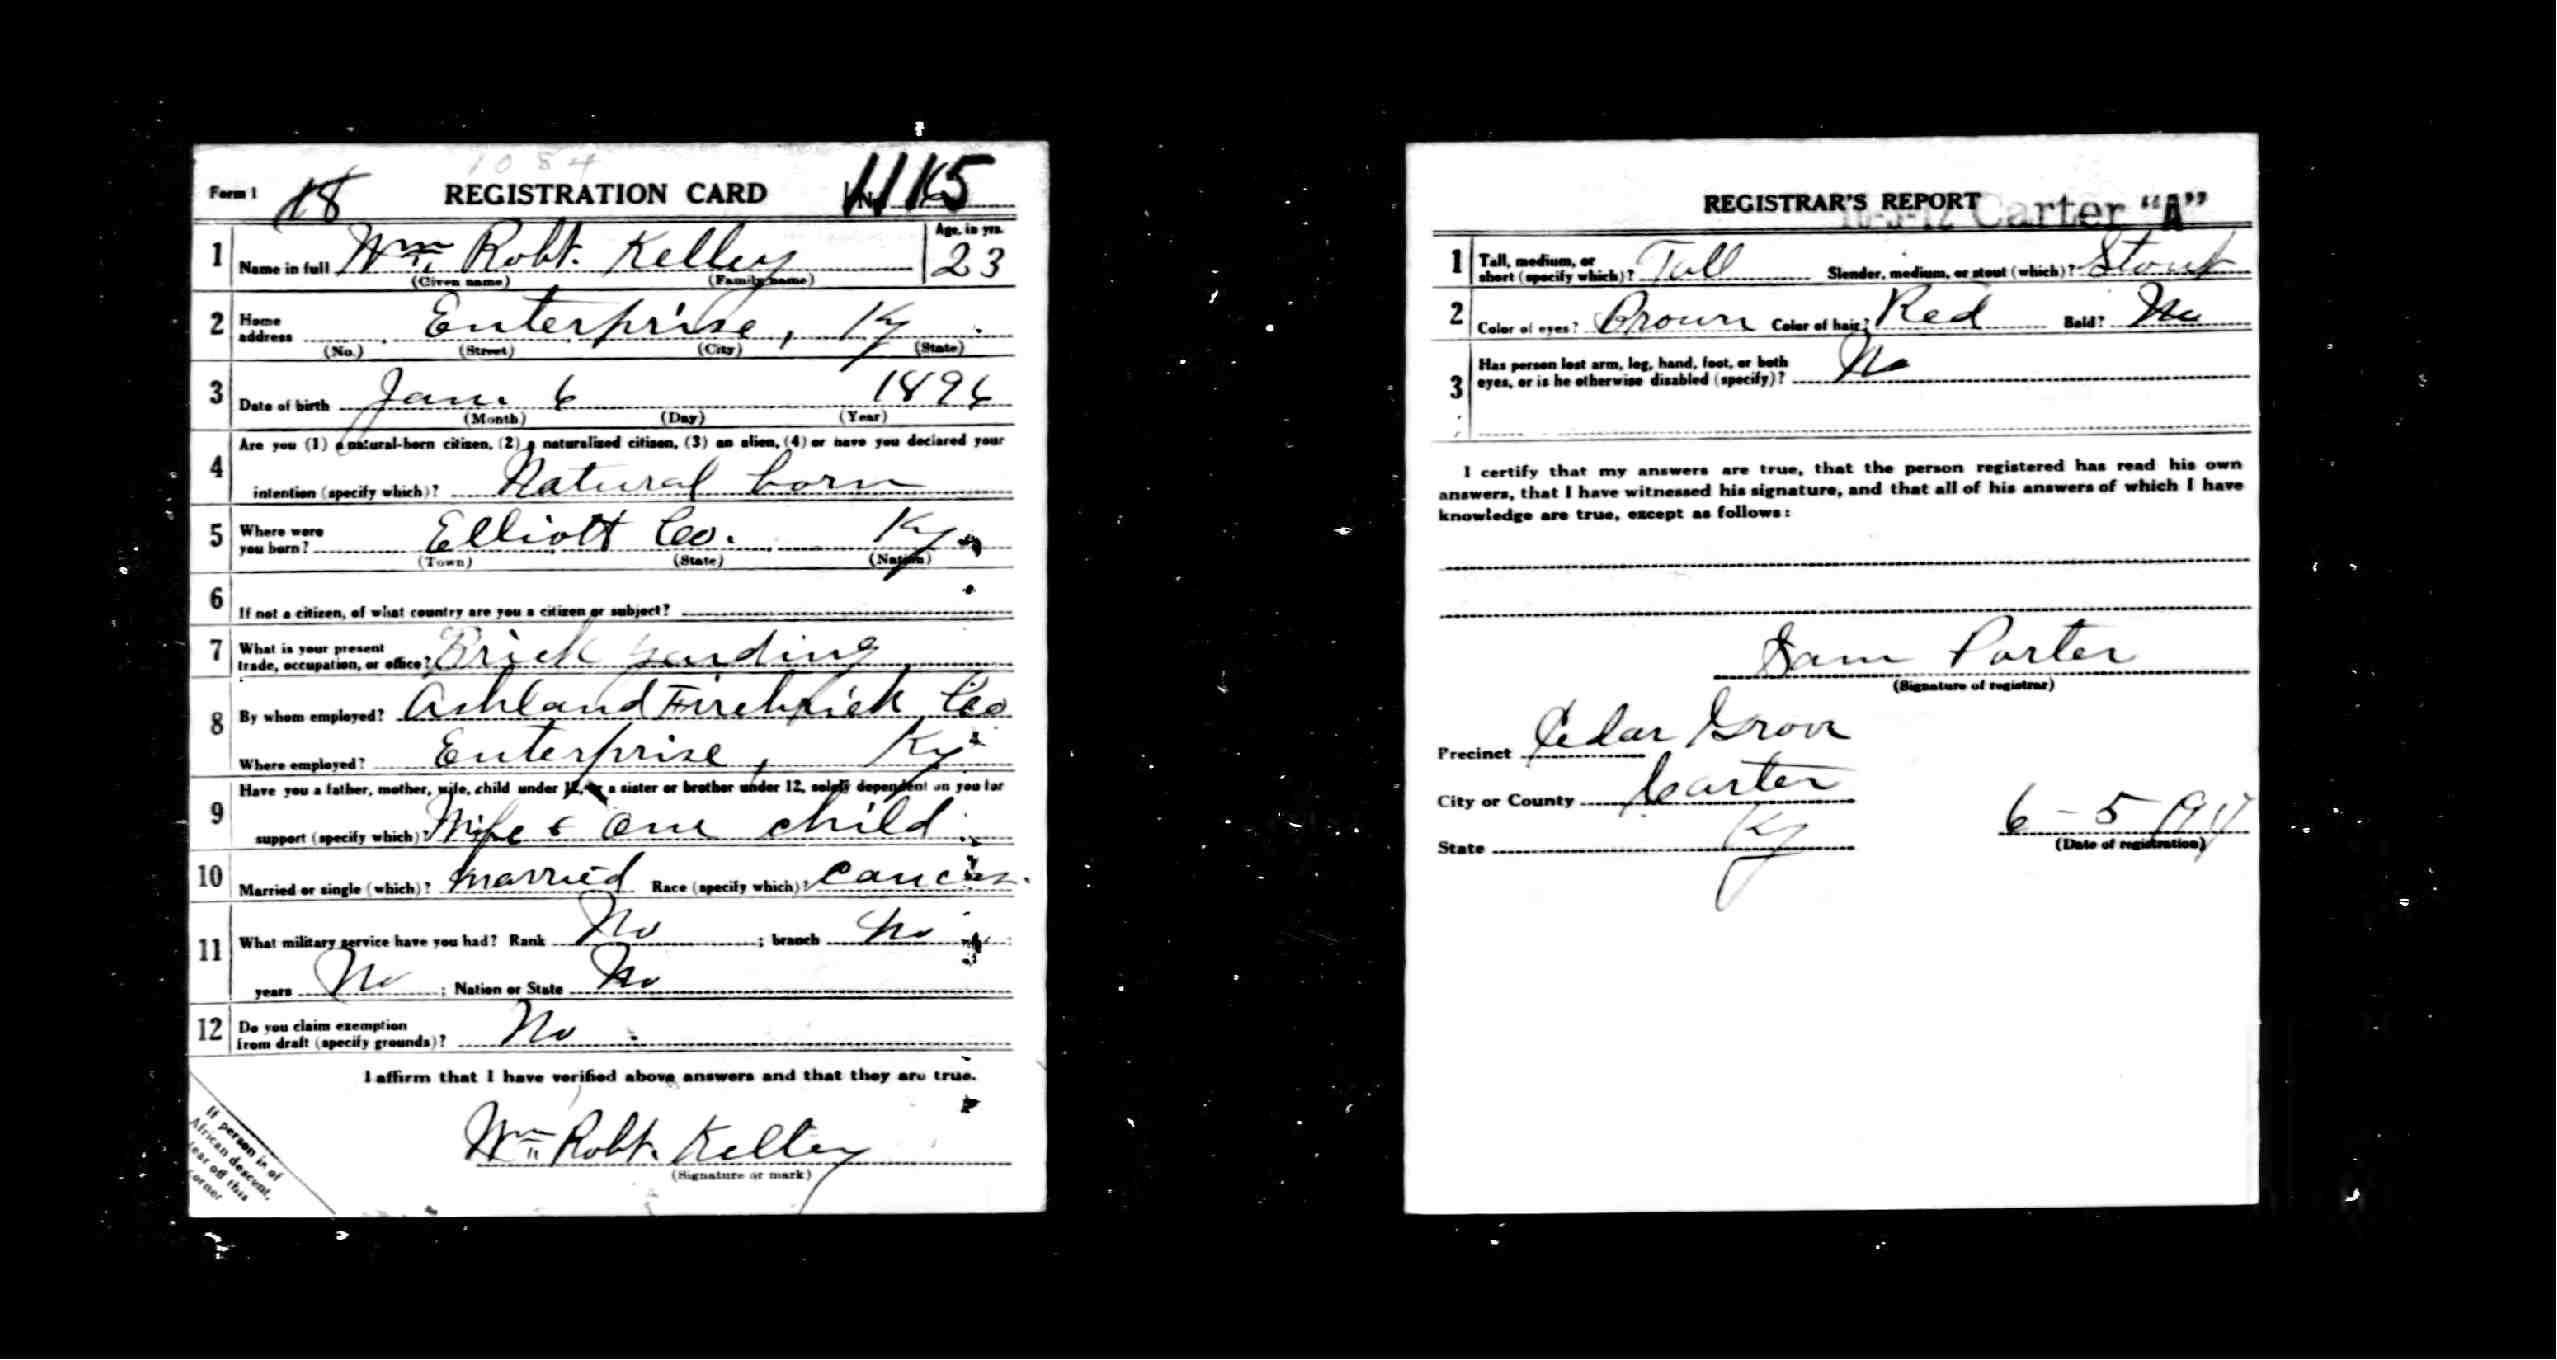 1084
Form 1 18 REGISTRATION CARD No.
1 Name in full Wm Robt. Kelley Age, in yrs. 23
(Given name) (Family name)
2 Home address Enterprise, Ky.
(No.) (Street) (City) (State)
3 Date of birth Jan. 6 1894
(Month) (Day) (Year)
4 Are you (1) a natural-born citizen, (2) a naturalized citizen, (3) an alien, (4) or have you declared your
intention (specify which)? Natural born
5 Where were you born? Elliott Co. Ky.
(Town) (State) (Nation)
6 If not a citizen, of what country are you a citizen or subject?
7 What is your present trade, occupation, or office? Brick yarding
8 By whom employed? Ashland Firebrick Co
Where employed? Enterprise, Ky
9 Have you a father, mother, wife, child under 12, or a sister or brother under 12, solely dependent on you for
support (specify which)? Wife & one child
10 Married or single (which)? married Race (specify which)?
11 What military service have you had? Rank No ; branch No
years No ; Nation or State No
12 Do you claim exemption from draft (specify grounds)? No.
I affirm that I have verified above answers and that they are true.
Wm Robt. Kelley
(Signature or mark)
If person is of
African descent,
tear off this
corner
REGISTRAR'S REPORT
Carter "A"
1 Tall, medium, or short (specify which)? Tall Slender, medium, or stout (which)? Stout
2 Color of eyes? Brown Color of hair? Red Bald? No
3 Has person lost arm, leg, hand, foot, or both
eyes, or is he otherwise disabled (specify)? No
I certify that my answers are true, that the person registered has read his own
answers, that I have witnessed his signature, and that all of his answers of which I have
knowledge are true, except as follows:
Sam Porter
(Signature of registrar)
Precinct Cedar Grove
City or County Carter
State Ky
6-5-1917
(Date of registration)